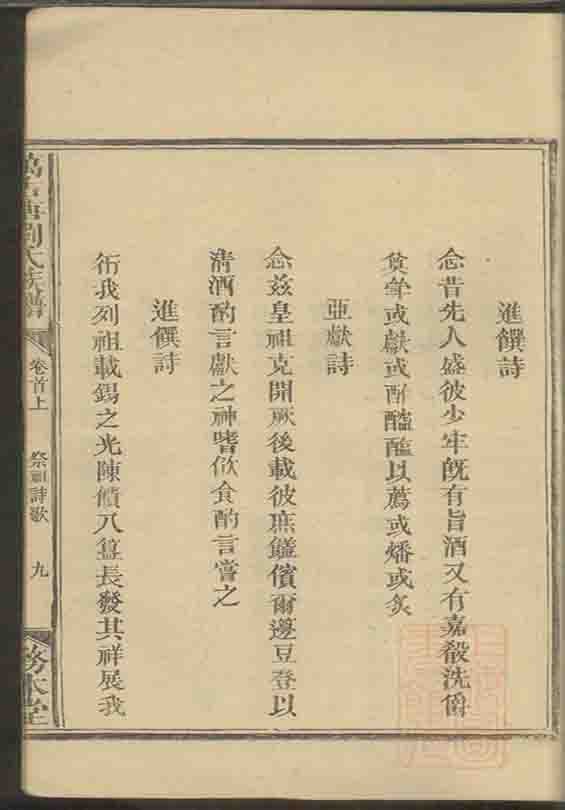 進饌詩
念昔先人盛彼少牢旣有旨酒又有嘉殽洗爵
奠斝或獻或酢醓醢以薦或燔或炙
亞獻詩
念茲皇祖克開厥後載彼庶饈儐爾籩豆登以
清酒酌言獻之神嗜飲食酌言嘗之
進饌詩
衎我列祖載錫之光陳饋八簋長發其祥展我
劉氏族譜
卷首上
祭祖詩歌
九
務本堂